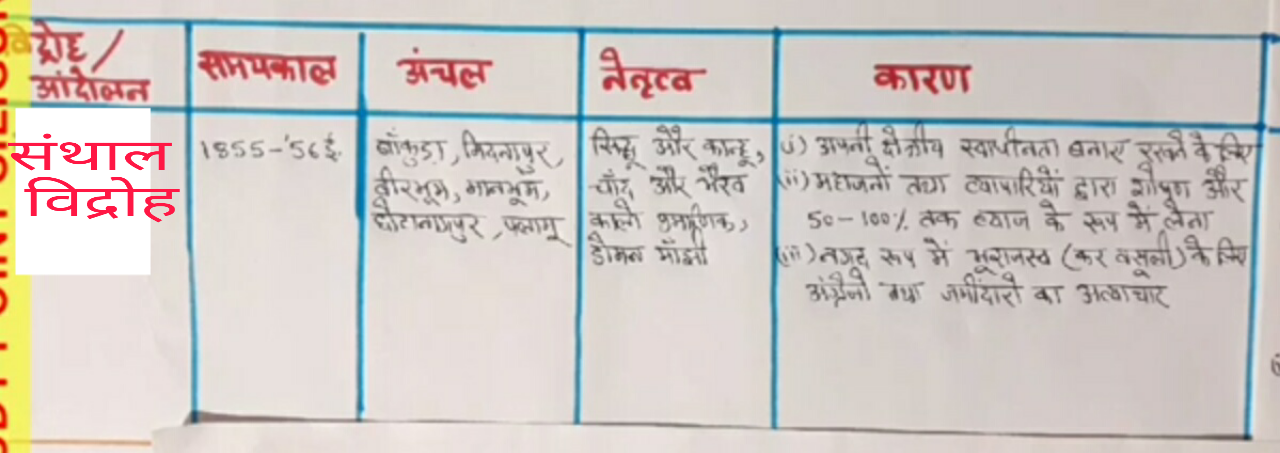 विद्रोह/
आंदोलन
समयकाल
अंचल
नेतृत्व
कारण
संथाल
विद्रोह
1855-'56 ई.
बाँकुडा, मिदनापुर,
वीरभूम, मानभूम,
छोटानागपुर, पलामू
सिद्धू और कान्हू,
चाँद और भैरव
कालो प्रमाणिक,
डोमन माँझी
(i) अपनी क्षेत्रीय स्वाधीनता बनाए रखने के लिए
(ii) महाजनों तथा व्यापारियों द्वारा शोषण और
50-100% तक ब्याज के रूप में लेना
(iii) नगद रूप में भूराजस्व (कर वसूली) के लिए
अंग्रेजो तथा जमींदारो का अत्याचार